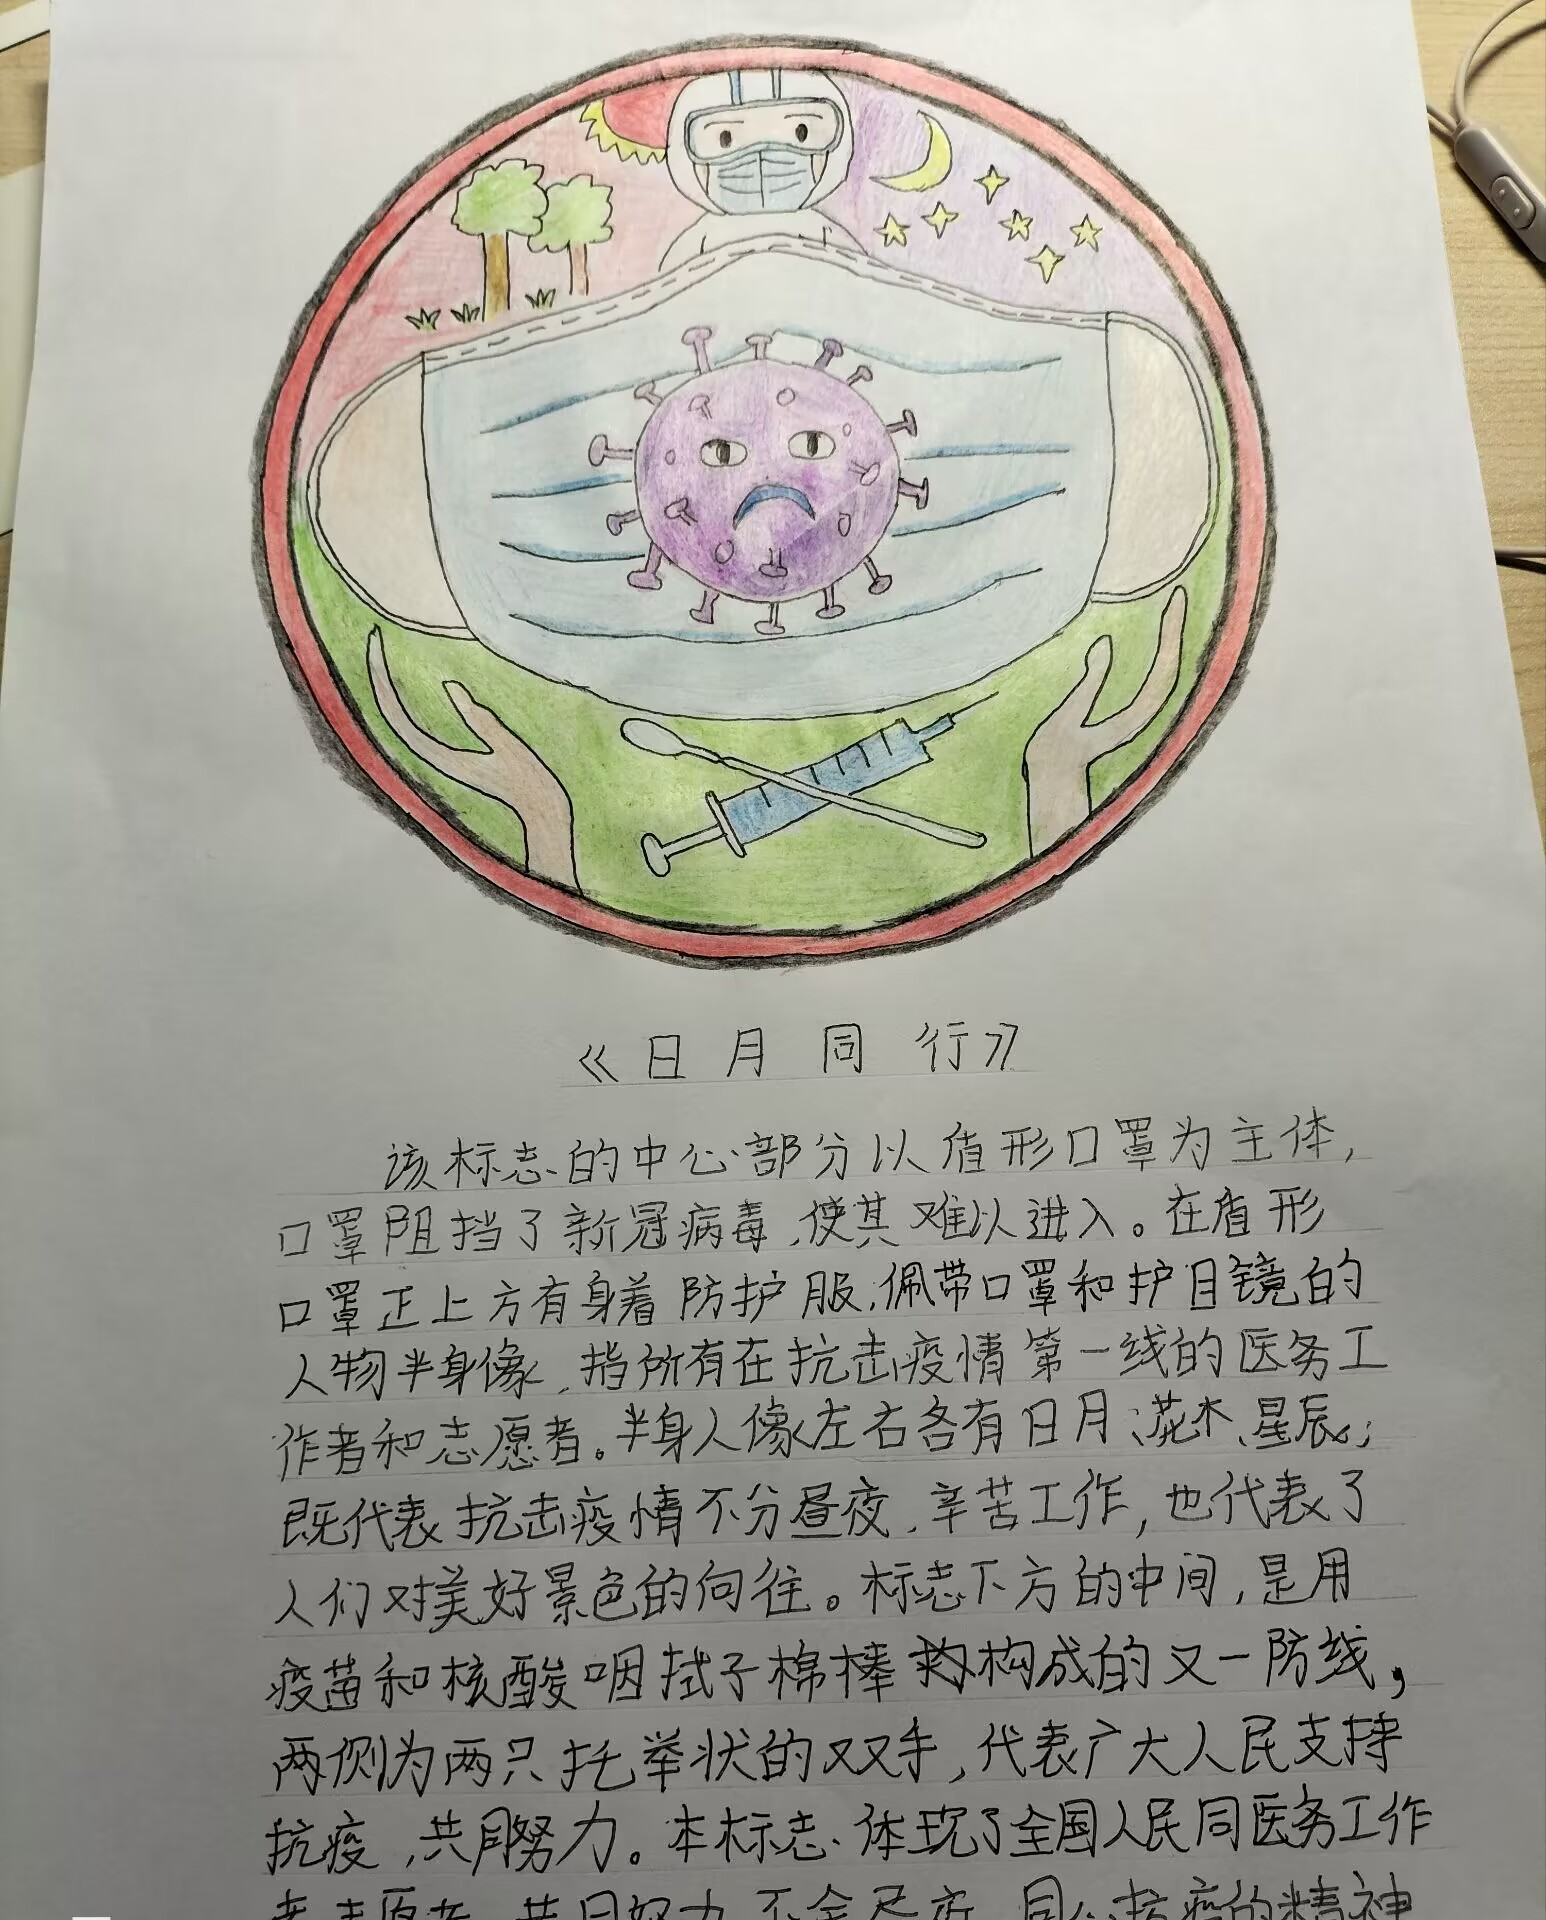 《日月同行》
该标志的中心部分以盾形口罩为主体,
口罩阻挡了新冠病毒,使其难以进入。在盾形
口罩正上方有身着防护服,佩带口罩和护目镜的
人物半身像,指所有在抗击疫情第一线的医务工
作者和志愿者。半身人像左右各有日月、花木、星辰;
既代表抗击疫情不分昼夜,辛苦工作,也代表了
人们对美好景色的向往。标志下方的中间,是用
疫苗和核酸咽拭子棉棒构成的又一防线,
两侧为两只托举状的双手,代表广大人民支持
抗疫,共同努力。本标志体现了全国人民同医务工作
者志愿者 共同努力 同心抗疫的精神